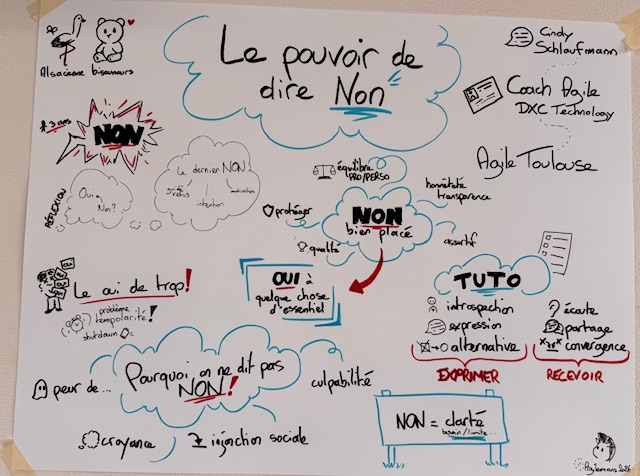 Le pouvoir de
dire Non
Alsacienne bisounours
Cindy
Schlaufmann
Coach Agile
DXC Technology
Agile Toulouse
3 ans
NON
RÉFLEXION
Oui ou
Non?
Le dernier NON
intention
équilibre
PRO/PERSO
honnêteté
transparence
protéger
NON
bien placé
qualité
assertif
OUI à
quelque chose
d'essentiel
Le oui de trop!
problème
temporalité!
shutdown
TUTO
introspection
expression
alternative
EXPRIMER
écoute
partage
convergence
RECEVOIR
Pourquoi on ne dit pas
NON!
peur de...
culpabilité
croyance
injonction sociale
NON = clarté
besoin/limite...